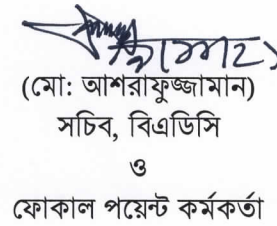 (মো: আশরাফুজ্জামান)
সচিব, বিএডিসি
ও
ফোকাল পয়েন্ট কর্মকর্তা